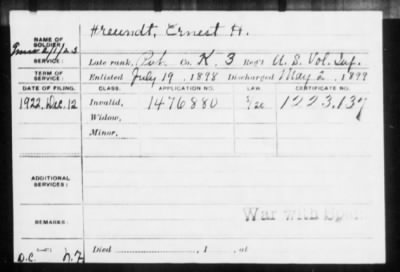 NAME OF SOLDIER:
Hreundt, Ernest H.
SERVICE: Late rank, Pvt. Co. K. 3 Reg't U. S. Vol. Inf.
TERM OF SERVICE: Enlisted July 19, 1898 Discharged May 2, 1899
DATE OF FILING. CLASS. APPLICATION NO. LAW. CERTIFICATE NO.
1922, Dec. 12 Invalid, 1476880 1223.137
Widow,
Minor,
ADDITIONAL SERVICES:
War with
REMARKS:
D.C. Died , 1 , at